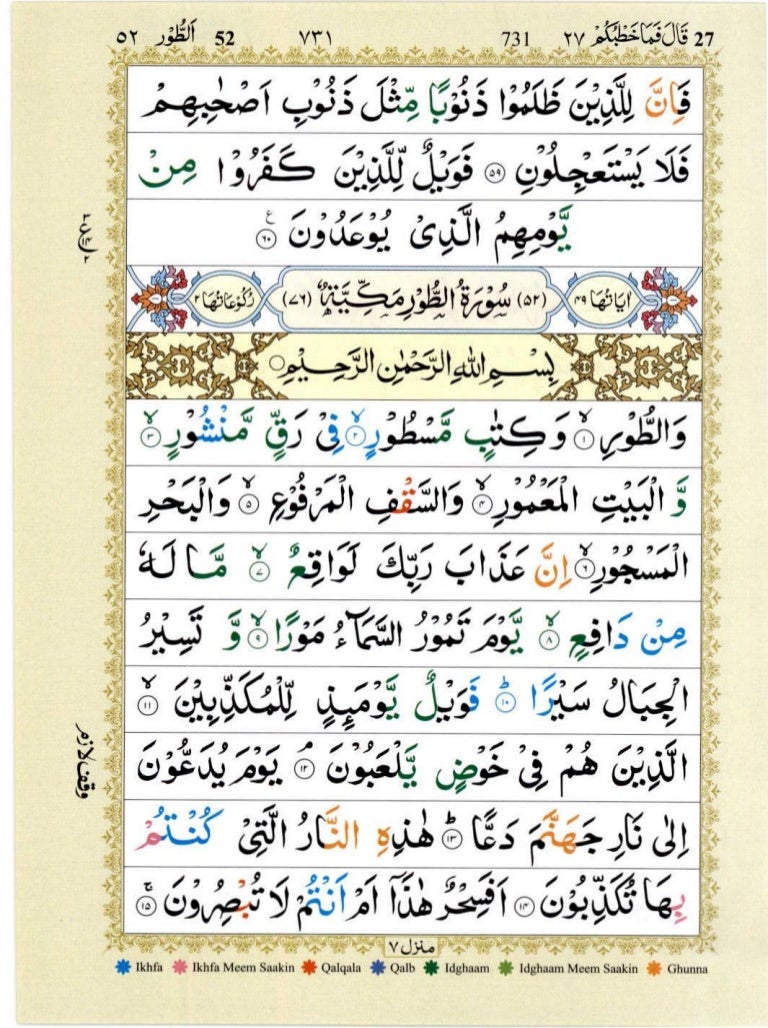 27 قَالَ فَمَا خَطْبُكُمْ ٢٧ 731 ٧٣١ 52 اَلطُّوْر ٥٢
فَاِنَّ لِلَّذِيْنَ ظَلَمُوْا ذَنُوْبًا مِّثْلَ ذَنُوْبِ اَصْحٰبِهِمْ
فَلَا يَسْتَعْجِلُوْنِ ٥٩ فَوَيْلٌ لِّلَّذِيْنَ كَفَرُوْا مِنْ
يَّوْمِهِمُ الَّذِيْ يُوْعَدُوْنَ ٦٠
اٰيَاتُهَا ٤٩ (٥٢) سُوْرَةُ الطُّوْرِ مَكِّيَّةٌ (٧٦) رُكُوْعَاتُهَا ٢
بِسْمِ اللّٰهِ الرَّحْمٰنِ الرَّحِيْمِ
وَالطُّوْرِ ١ۙ وَكِتٰبٍ مَّسْطُوْرٍ ٢ۙ فِيْ رَقٍّ مَّنْشُوْرٍ ٣ۙ
وَّ الْبَيْتِ الْمَعْمُوْرِ ٤ۙ وَالسَّقْفِ الْمَرْفُوْعِ ٥ۙ وَالْبَحْرِ
الْمَسْجُوْرِ ٦ۙ اِنَّ عَذَابَ رَبِّكَ لَوَاقِعٌ ٧ۙ مَّا لَهٗ
مِنْ دَافِعٍ ٨ۙ يَّوْمَ تَمُوْرُ السَّمَآءُ مَوْرًا ٩ۙ وَّ تَسِيْرُ
الْجِبَالُ سَيْرًا ١٠ؕ فَوَيْلٌ يَّوْمَئِذٍ لِّلْمُكَذِّبِيْنَ ١١ۙ
الَّذِيْنَ هُمْ فِيْ خَوْضٍ يَّلْعَبُوْنَ ١٢ۘ يَوْمَ يُدَعُّوْنَ
اِلٰى نَارِ جَهَنَّمَ دَعًّا ١٣ؕ هٰذِهِ النَّارُ الَّتِيْ كُنْتُمْ
بِهَا تُكَذِّبُوْنَ ١٤ اَفَسِحْرٌ هٰذَآ اَمْ اَنْتُمْ لَا تُبْصِرُوْنَ ١٥ۚ
وقف لازم
منزل ٧
Ikhfa Ikhfa Meem Saakin Qalqala Qalb Idghaam Idghaam Meem Saakin Ghunna